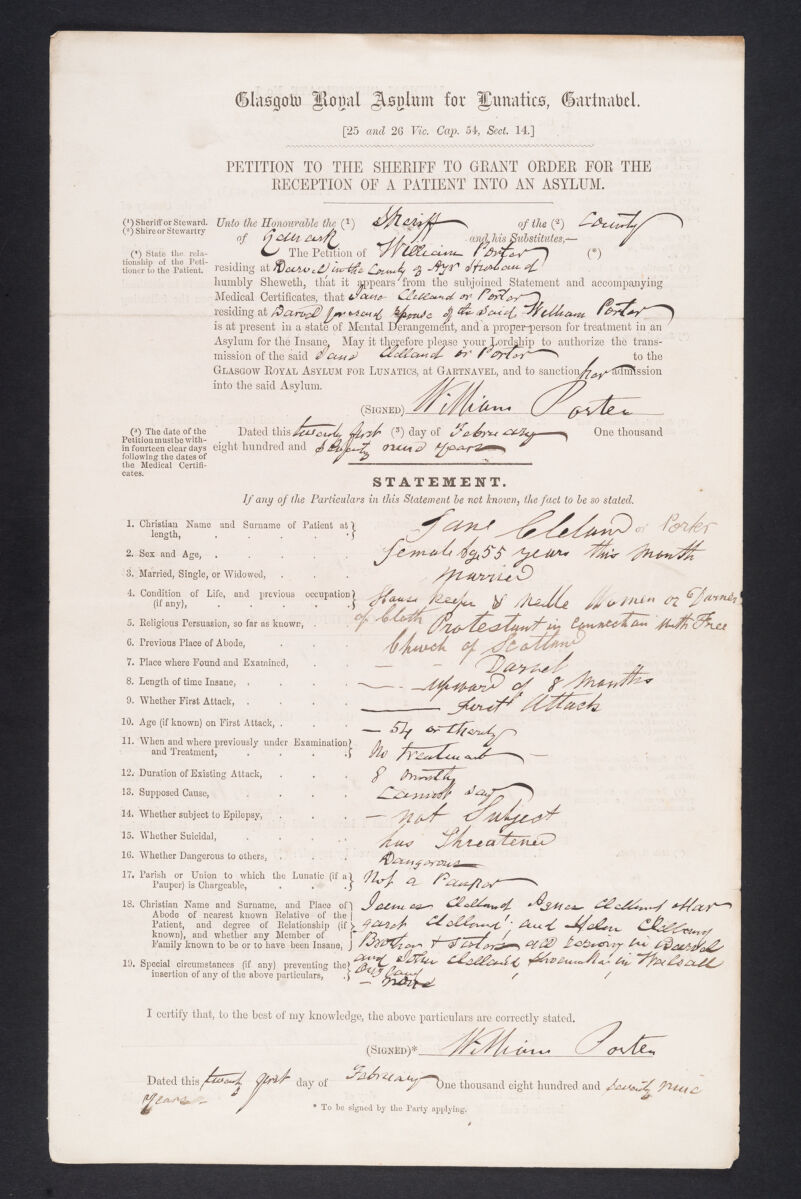 Glasgow Royal Asylum for Lunatics, Gartnavel.
[25 and 26 Vic. Cap. 54, Sect. 14.]
PETITION TO THE SHERIFF TO GRANT ORDER FOR THE
RECEPTION OF A PATIENT INTO AN ASYLUM.
(¹) Sheriff or Steward.
(²) Shire or Stewartry
Unto the Honourable the (¹) Sheriff of the (²) County
of Lanark and his Substitutes,—
(*) State the rela-
tionship of the Peti-
tioner to the Patient.
The Petition of William Porter (*)
residing at Darvel in the County of Ayr Husband
humbly Sheweth, that it appears from the subjoined Statement and accompanying
Medical Certificates, that Jane Clelland or Porter
residing at Darvel Spouse of the said William Porter
is at present in a state of Mental Derangement, and a proper person for treatment in an
Asylum for the Insane, May it therefore please your Lordship to authorize the trans-
mission of the said Jane Clelland or Porter to the
GLASGOW ROYAL ASYLUM FOR LUNATICS, at GARTNAVEL, and to sanction her admission
into the said Asylum.
(SIGNED) William Porter
(³) The date of the
Petition must be with-
in fourteen clear days
following the dates of
the Medical Certifi-
cates.
Dated this twenty first (³) day of February One thousand
eight hundred and Seventy nine years
STATEMENT.
If any of the Particulars in this Statement be not known, the fact to be so stated.
1. Christian Name and Surname of Patient at length, Jane Cleland or Porter
2. Sex and Age, female Age 55 years this month
3. Married, Single, or Widowed, Married
4. Condition of Life, and previous occupation (if any), House keeper & Nedle Women or Darner
of Cloth
5. Religious Persuasion, so far as known, Protestant in connection with Free
Church of Scotland
6. Previous Place of Abode,
7. Place where Found and Examined, — — Darvel
8. Length of time Insane, — upward of 8 Months
9. Whether First Attack, — first Attack
10. Age (if known) on First Attack, — 54 or thereby
11. When and where previously under Examination and Treatment, No treatment —
12. Duration of Existing Attack, 8 months
13. Supposed Cause, cannot say
14. Whether subject to Epilepsy, — not Subject
15. Whether Suicidal, has Threatened
16. Whether Dangerous to others, Dangerous
17. Parish or Union to which the Lunatic (if a Pauper) is Chargeable, Not a Pauper
18. Christian Name and Surname, and Place of
Abode of nearest known Relative of the
Patient, and degree of Relationship (if
known), and whether any Member of
Family known to be or to have been Insane,
James Clelland Agnes Clelland Mar
garet Clelland, and Helen Clelland
Brother & Sisters all in Darvel
and John Clelland, Shoemaker, in Walsall
England
19. Special circumstances (if any) preventing the
insertion of any of the above particulars, — none
I certify that, to the best of my knowledge, the above particulars are correctly stated.
(SIGNED)* William Porter
Dated this twenty first day of February One thousand eight hundred and seventy nine
years
* To be signed by the Party applying.